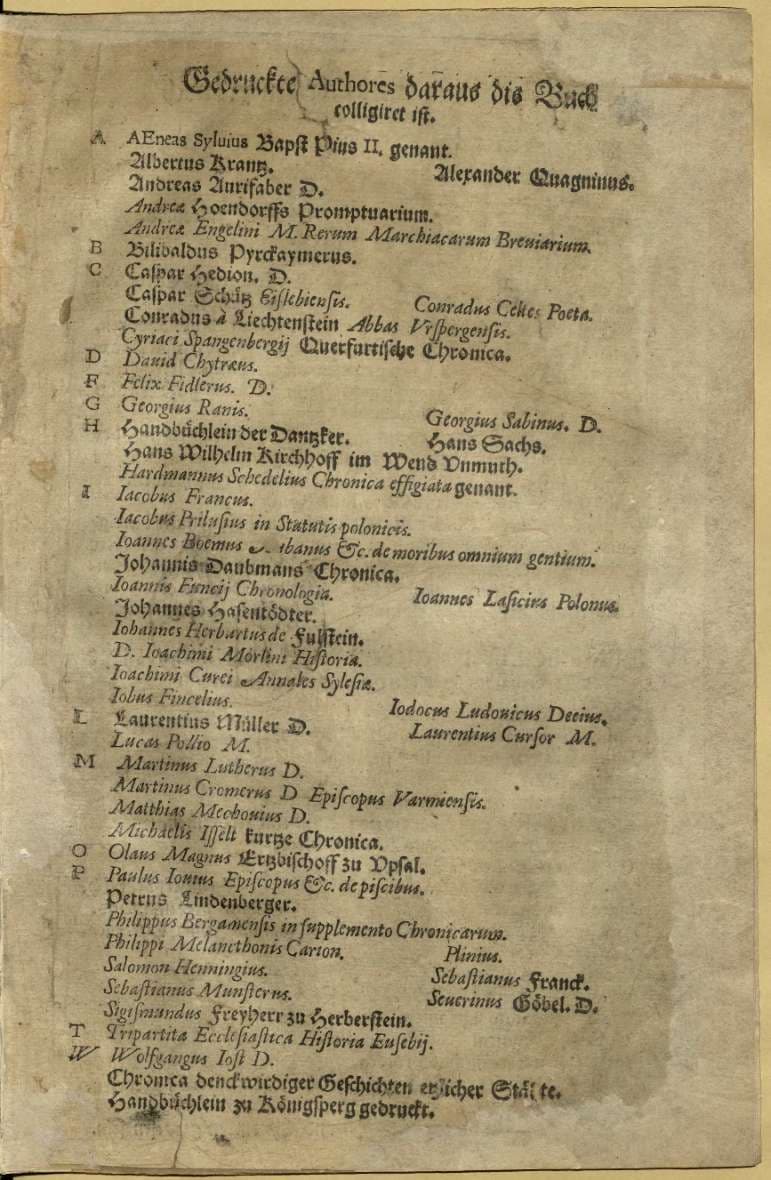 Gedruckte Authores daraus dis Buch
colligiret ist.
A AEneas Syluius Bapst Pius II. genant.
Albertus Krantz. Alexander Quagninus.
Andreas Aurifaber D.
Andreæ Hoendorffs Promptuarium.
Andreæ Engelini M. Rerum Marchiacarum Breuiarium.
B Bilibaldus Pyrckaymerus.
C Caspar Hedion. D.
Caspar Schütz Eislebiensis. Conradus Celtes Poeta.
Conradus à Liechtenstein Abbas Vrspergensis.
Cyriaci Spangenbergij Querfurtische Chronica.
D Dauid Chytræus.
F Felix Fidlerus. D.
G Georgius Ranis. Georgius Sabinus. D.
H Handbüchlein der Dantzker. Hans Sachs.
Hans Wilhelm Kirchhoff im Wend Vnmuth.
Hardmannus Schedelius Chronica effigiata genant.
I Iacobus Francus.
Iacobus Prilusius in Statutis polonicis.
Ioannes Boemus &c. de moribus omnium gentium.
Johannis Daubmans Chronica.
Ioannis Funcij Chronologia. Ioannes Lasicius Polonus.
Johannes Hasentödter.
Iohannes Herburtus de Fulstein.
D. Ioachimi Mörlini Historia.
Ioachimi Curei Annales Sylesiæ.
Iobus Fincelius. Iodocus Ludouicus Decius.
L Laurentius Müller D. Laurentius Cursor M.
Lucas Pollio M.
M Martinus Lutherus D.
Martinus Cromerus D Episcopus Varmiensis.
Matthias Mechouius D.
Michaelis Isselt kurtze Chronica.
O Olaus Magnus Ertzbischoff zu Vpsal.
P Paulus Iouius Episcopus &c. de piscibus.
Petrus Lindenberger.
Philippus Bergamensis in supplemento Chronicarum.
Philippi Melancthonis Carion. Plinius.
Salomon Henningius. Sebastianus Franck.
Sebastianus Munsterus. Seuerinus Göbel. D.
Sigismundus Freyherr zu Herberstein.
T Tripartita Ecclesiastica Historia Eusebij.
W Wolfgangus Iost D.
Chronica denckwirdiger Geschichten etzlicher Städte.
Handbüchlein zu Königsperg gedruckt.